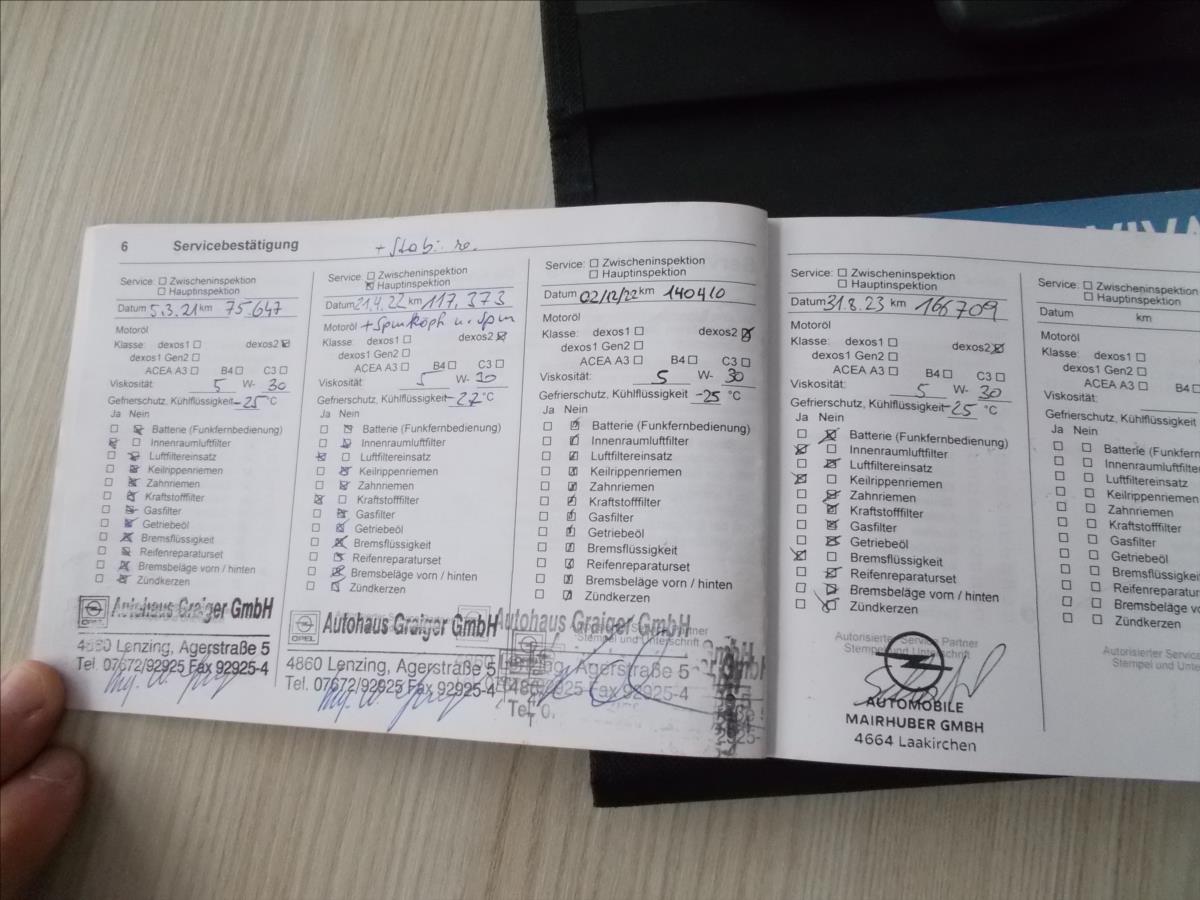 6 Servicebestätigung + Stab. re.
Service: Zwischeninspektion
Hauptinspektion
Datum 5.3.21 km 75.647
Motoröl
Klasse: dexos1 dexos2
dexos1 Gen2
ACEA A3 B4 C3
Viskosität: 5 W- 30
Gefrierschutz, Kühlflüssigkeit -25 °C
Ja Nein
Batterie (Funkfernbedienung)
Innenraumluftfilter
Luftfiltereinsatz
Keilrippenriemen
Zahnriemen
Kraftstofffilter
Gasfilter
Getriebeöl
Bremsflüssigkeit
Reifenreparaturset
Bremsbeläge vorn / hinten
Zündkerzen
Autohaus Graiger GmbH
OPEL
4860 Lenzing, Agerstraße 5
Tel. 07672/92925 Fax 92925-4
Service: Zwischeninspektion
Hauptinspektion
Datum 21.4.22 km 117.373
Motoröl + Spurköpfe u. Spur
Klasse: dexos1 dexos2
dexos1 Gen2
ACEA A3 B4 C3
Viskosität: 5 W- 30
Gefrierschutz, Kühlflüssigkeit -27 °C
Ja Nein
Batterie (Funkfernbedienung)
Innenraumluftfilter
Luftfiltereinsatz
Keilrippenriemen
Zahnriemen
Kraftstofffilter
Gasfilter
Getriebeöl
Bremsflüssigkeit
Reifenreparaturset
Bremsbeläge vorn / hinten
Zündkerzen
Autohaus Graiger GmbH
OPEL
4860 Lenzing, Agerstraße 5
Tel. 07672/92925 Fax 92925-4
Service: Zwischeninspektion
Hauptinspektion
Datum 02/12/22 km 140410
Motoröl
Klasse: dexos1 dexos2
dexos1 Gen2
ACEA A3 B4 C3
Viskosität: 5 W- 30
Gefrierschutz, Kühlflüssigkeit -25 °C
Ja Nein
Batterie (Funkfernbedienung)
Innenraumluftfilter
Luftfiltereinsatz
Keilrippenriemen
Zahnriemen
Kraftstofffilter
Gasfilter
Getriebeöl
Bremsflüssigkeit
Reifenreparaturset
Bremsbeläge vorn / hinten
Zündkerzen
Autohaus Graiger GmbH
Stempel und Unterschrift
Lenzing, Agerstraße 5
Fax 92925-4
Service: Zwischeninspektion
Hauptinspektion
Datum 31.8.23 km 166709
Motoröl
Klasse: dexos1 dexos2
dexos1 Gen2
ACEA A3 B4 C3
Viskosität: 5 W- 30
Gefrierschutz, Kühlflüssigkeit -25 °C
Ja Nein
Batterie (Funkfernbedienung)
Innenraumluftfilter
Luftfiltereinsatz
Keilrippenriemen
Zahnriemen
Kraftstofffilter
Gasfilter
Getriebeöl
Bremsflüssigkeit
Reifenreparaturset
Bremsbeläge vorn / hinten
Zündkerzen
Autorisierter Service Partner
Stempel und Unterschrift
AUTOMOBILE
MAIRHUBER GMBH
4664 Laakirchen
Service: Zwischeninspektion
Hauptinspektion
Datum km
Motoröl
Klasse: dexos1
dexos1 Gen2
ACEA A3 B4
Viskosität:
Gefrierschutz, Kühlflüssigkeit
Ja Nein
Batterie (Funkfern
Innenraumluftfilter
Luftfiltereinsatz
Keilrippenriemen
Zahnriemen
Kraftstofffilter
Gasfilter
Getriebeöl
Bremsflüssigkei
Reifenreparatur
Bremsbeläge vo
Zündkerzen
Autorisierter Service
Stempel und Unte